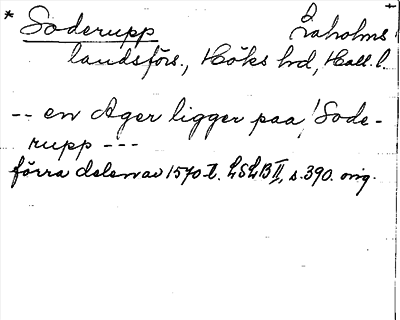 * Soderupp Laholms
landsförs., Höks hd, Hall. l.
-- en Ager ligger paa, Sode-
rupp ---
förra delen av 1570-t. LSLB II, s. 390. orig.